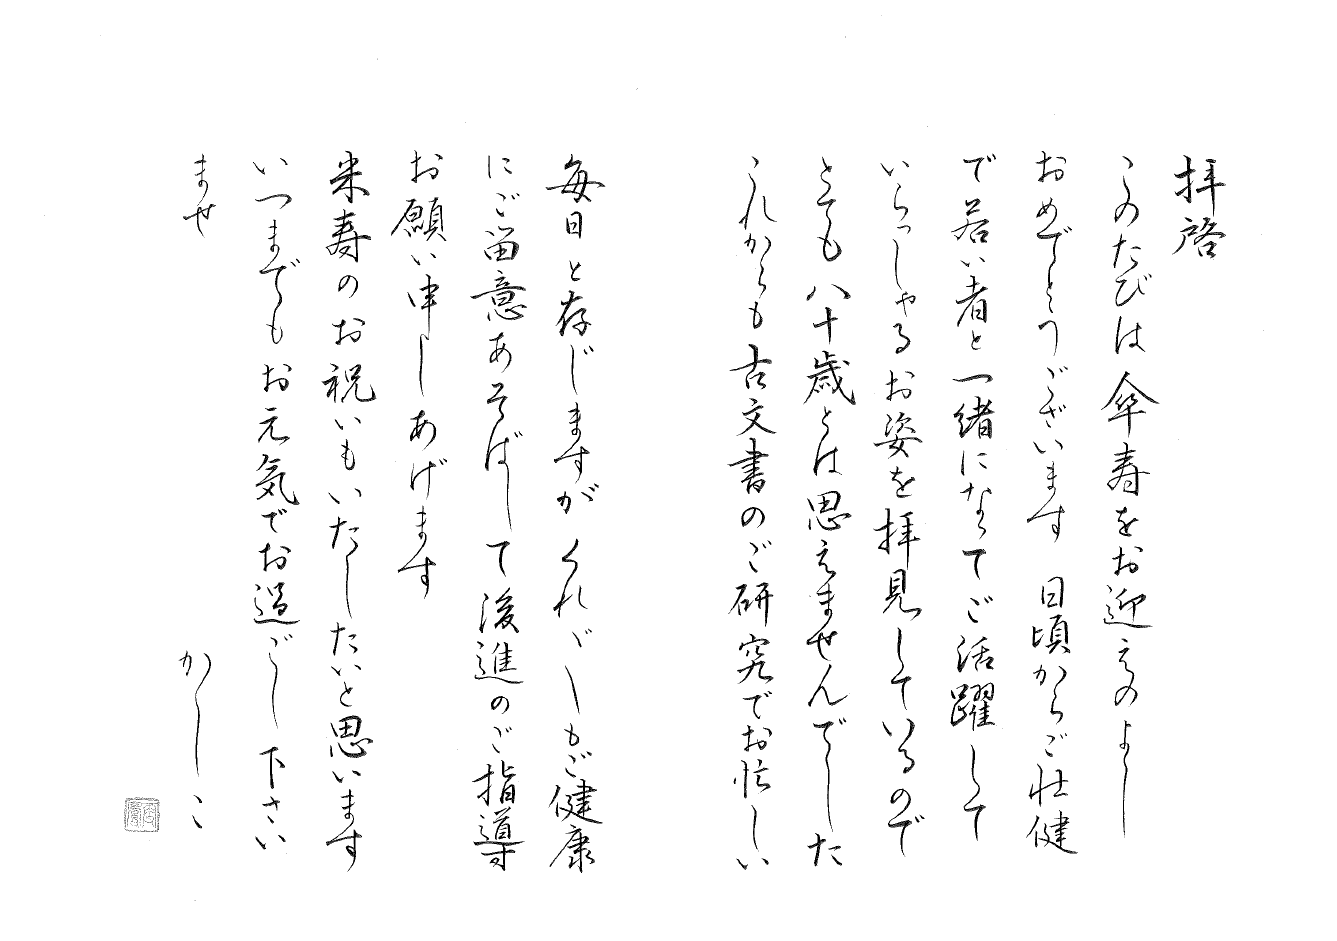 拝啓
このたびは傘寿をお迎えのよし
おめでとうございます 日頃からご壮健
で若い者と一緒になってご活躍して
いらっしゃるお姿を拝見しているので
とても八十歳とは思えませんでした
これからも古文書のご研究でお忙しい
毎日と存じますがくれ〲もご健康
にご留意あそばして後進のご指導
お願い申しあげます
米寿のお祝いもいたしたいと思います
いつまでもお元気でお過ごし下さい
ませ
かしこ